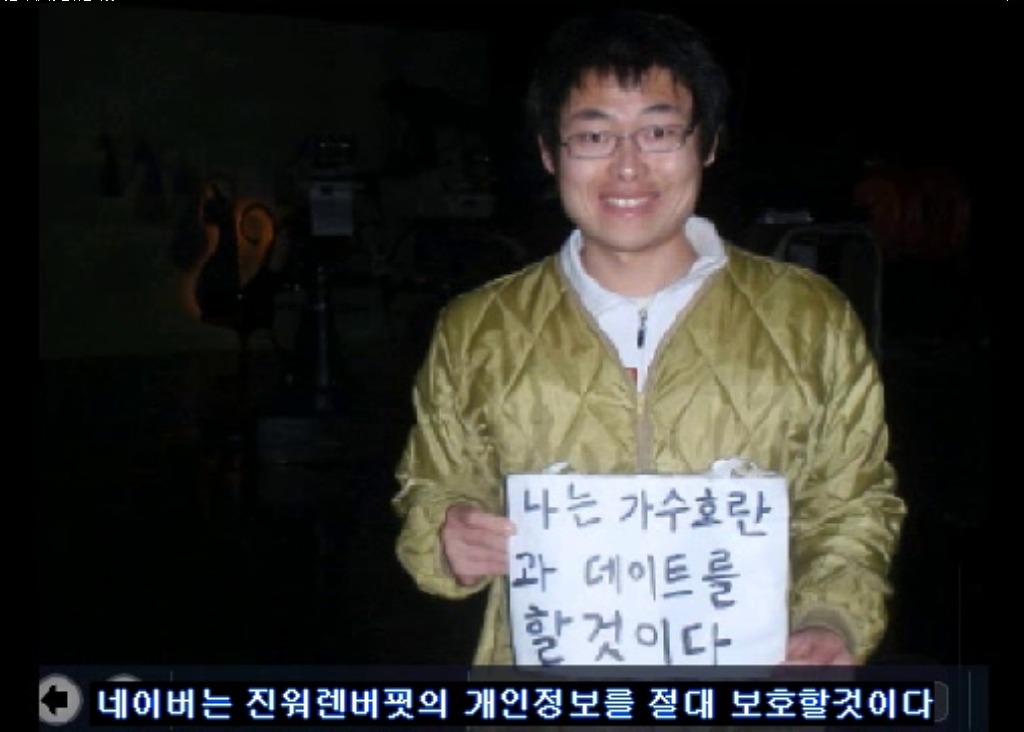 나는 가수호란
과 데이트를
할것이다
네이버는 진워렌버핏의 개인정보를 절대 보호할것이다